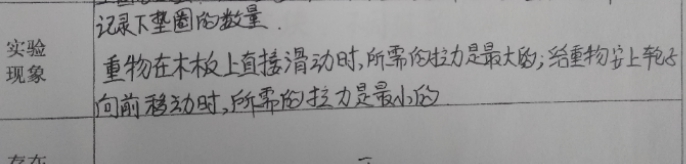 记录下垫圈的数量.
实验
现象
重物在木板上直接滑动时,所需的拉力是最大的;给重物安上轮子
向前移动时,所需的拉力是最小的